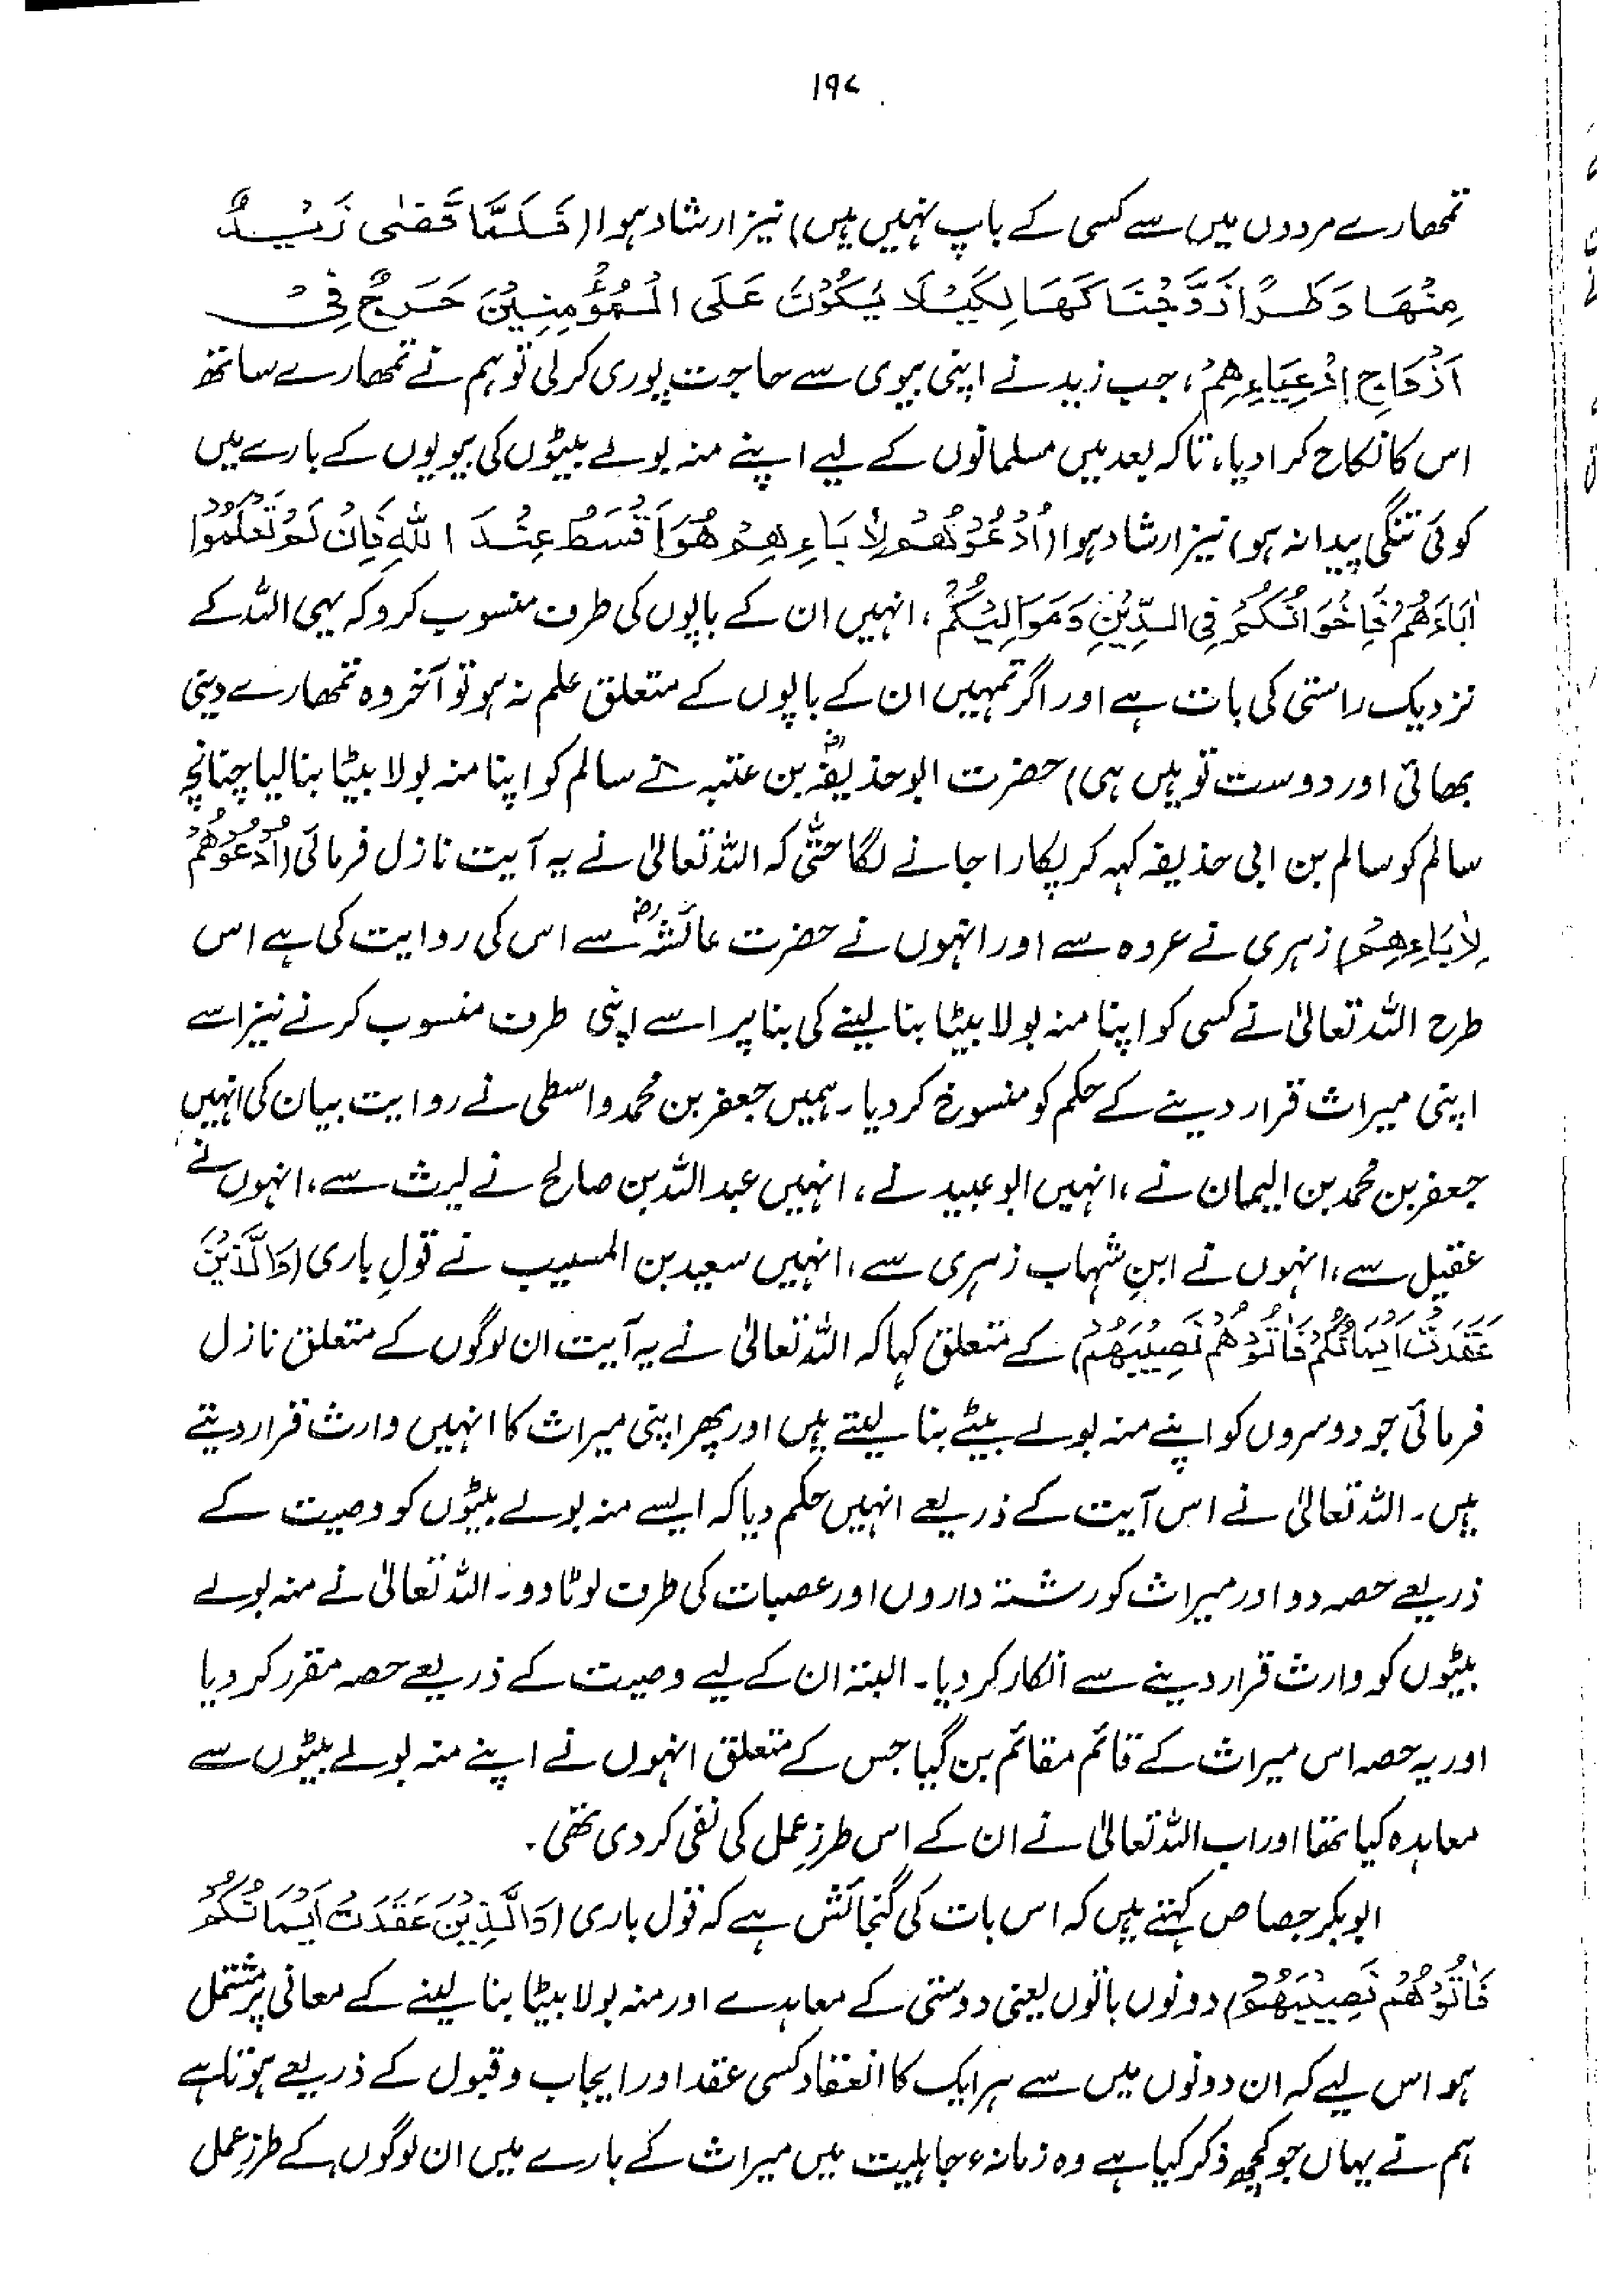 ۱۹۷
تمھارے مردوں میں سے کسی کے باپ نہیں ہیں) نیز ارشاد ہوا (فَلَمَّا قَضٰى زَيْدٌ
مِنْهَا وَطَرًا زَوَّجْنَاكَهَا لِكَيْلَا يَكُوْنَ عَلَى الْمُؤْمِنِيْنَ حَرَجٌ فِيْ
اَزْوَاجِ اَدْعِيَاءِهِمْ، جب زید نے اپنی بیوی سے حاجت پوری کرلی تو ہم نے تمھارے ساتھ
اس کا نکاح کرا دیا، تاکہ بعد میں مسلمانوں کے لیے اپنے منہ بولے بیٹوں کی بیویوں کے بارے میں
کوئی تنگی پیدا نہ ہو) نیز ارشاد ہوا (اُدْعُوْهُمْ لِاٰبَاءِهِمْ هُوَ اَقْسَطُ عِنْدَ اللّٰهِ فَاِنْ لَمْ تَعْلَمُوْا
اٰبَاءَهُمْ فَاِخْوَانُكُمْ فِي الدِّيْنِ وَمَوَالِيْكُمْ، انہیں ان کے باپوں کی طرف منسوب کرو کہ یہی اللہ کے
نزدیک راستی کی بات ہے اور اگر تمہیں ان کے باپوں کے متعلق علم نہ ہو تو آخر وہ تمھارے دینی
بھائی اور دوست تو ہیں ہی) حضرت ابو حذیفہؓ بن عتبہ نے سالم کو اپنا منہ بولا بیٹا بنالیا چنانچہ
سالم کو سالم بن ابی حذیفہ کہہ کر پکارا جانے لگا حتّٰی کہ اللہ تعالیٰ نے یہ آیت نازل فرمائی (اُدْعُوْهُمْ
لِاٰبَاءِهِمْ) زہری نے عروہ سے اور انہوں نے حضرت عائشہؓ سے اس کی روایت کی ہے اس
طرح اللہ تعالیٰ نے کسی کو اپنا منہ بولا بیٹا بنا لینے کی بنا پر اسے اپنی طرف منسوب کرنے نیز اسے
اپنی میراث قرار دینے کے حکم کو منسوخ کر دیا۔ ہمیں جعفر بن محمد واسطی نے روایت بیان کی انہیں
جعفر بن محمد بن الیمان نے، انہیں ابو عبید نے، انہیں عبداللہ بن صالح نے لیث سے، انہوں نے
عقیل سے، انہوں نے ابنِ شہاب زہری سے، انہیں سعید بن المسیب نے قولِ باری (وَالَّذِيْنَ
عَقَدَتْ اَيْمَانُكُمْ فَاٰتُوْهُمْ نَصِيْبَهُمْ) کے متعلق کہا کہ اللہ تعالیٰ نے یہ آیت ان لوگوں کے متعلق نازل
فرمائی جو دوسروں کو اپنے منہ بولے بیٹے بنا لیتے ہیں اور پھر اپنی میراث کا انہیں وارث قرار دیتے
ہیں۔ اللہ تعالیٰ نے اس آیت کے ذریعے انہیں حکم دیا کہ ایسے منہ بولے بیٹوں کو وصیت کے
ذریعے حصہ دو اور میراث کو رشتہ داروں اور عصبات کی طرف لوٹا دو۔ اللہ تعالیٰ نے منہ بولے
بیٹوں کو وارث قرار دینے سے انکار کر دیا۔ البتہ ان کے لیے وصیت کے ذریعے حصہ مقرر کر دیا
اور یہ حصہ اس میراث کے قائم مقائم بن گیا جس کے متعلق انہوں نے اپنے منہ بولے بیٹوں سے
معاہدہ کیا تھا اور اب اللہ تعالیٰ نے ان کے اس طرزِ عمل کی نفی کر دی تھی۔
ابوبکر جصاص کہتے ہیں کہ اس بات کی گنجائش ہے کہ قول باری (وَالَّذِيْنَ عَقَدَتْ اَيْمَانُكُمْ
فَاٰتُوْهُمْ نَصِيْبَهُمْ) دونوں باتوں یعنی دوستی کے معاہدے اور منہ بولا بیٹا بنا لینے کے معانی پر مشتمل
ہو اس لیے کہ ان دونوں میں سے ہر ایک کا انعقاد کسی عقد اور ایجاب و قبول کے ذریعے ہوتا ہے
ہم نے یہاں جو کچھ ذکر کیا ہے وہ زمانۂ جاہلیت میں میراث کے بارے میں ان لوگوں کے طرزِ عمل